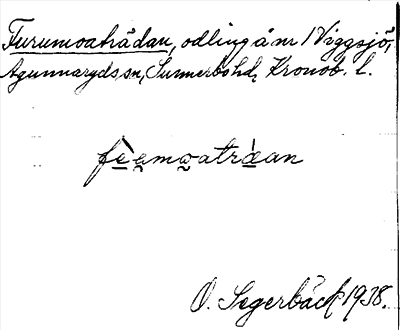 Furumoaträdan, odling å nr 1 Viggsjö,
Agunnaryds sn, Sunnerbo hd, Kronob. l.
fè̲a̯mo̯atræ̲̀an
O. Segerbäck 1938.